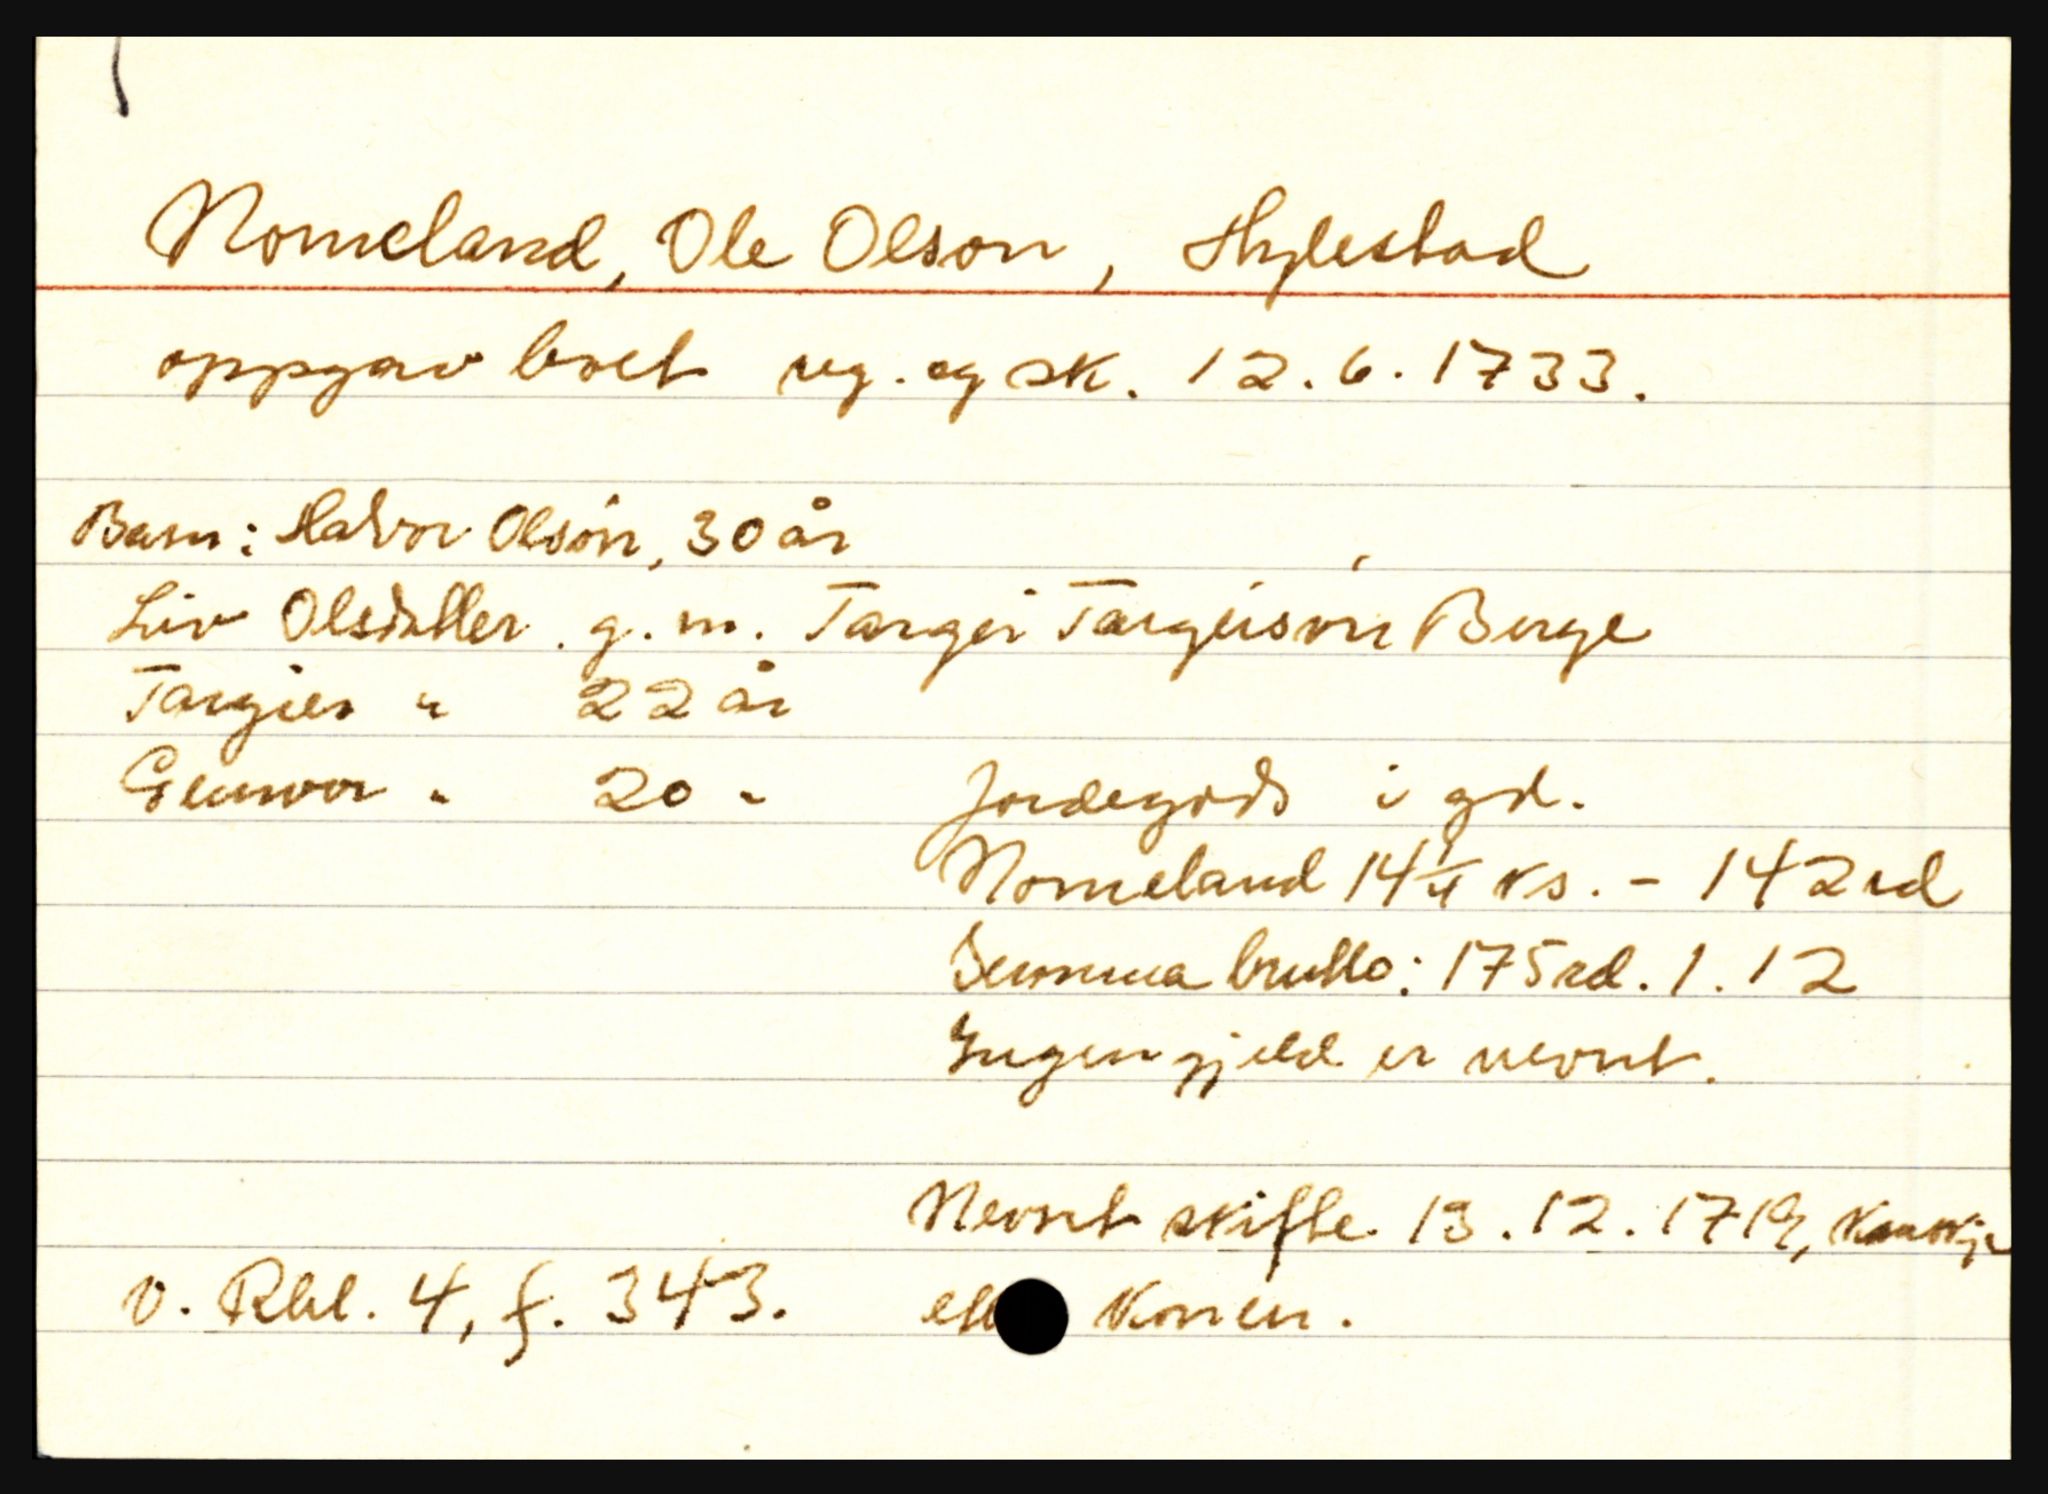 Nomeland, Ole Olson, Hylestad
oppgav boet reg. og sk. 12.6.1733.
Barn: Halvor Olson, 30 år
Liv Olsdatter g.m. Targei Targeison Berge
Targier " 22 år
Gunvor " 20 "
Jordegods i gd.
Nomeland 14 1/4 ks. - 142 rd
Summa brutto: 175 rd. 1. 12
Ingen gjeld er nevnt.
Nevnt skifte 13.12.1719, kanskje
v. Rbl. 4, f. 343.
konen.